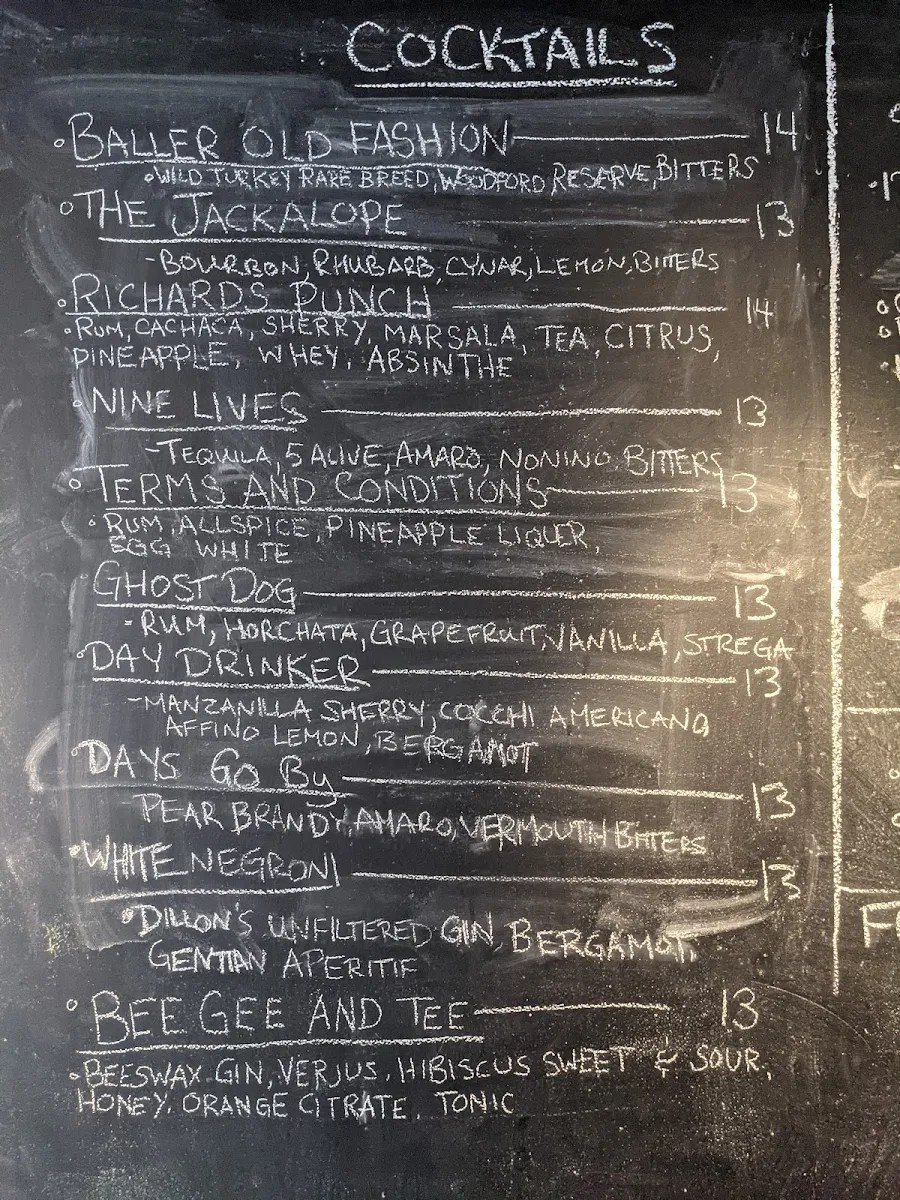 COCKTAILS
•BALLER OLD FASHION 14
•WILD TURKEY RARE BREED, WOODFORD RESERVE, BITTERS
•THE JACKALOPE 13
-BOURBON, RHUBARB, CYNAR, LEMON, BITTERS
•RICHARDS PUNCH 14
•RUM, CACHACA, SHERRY, MARSALA, TEA, CITRUS,
PINEAPPLE, WHEY, ABSINTHE
•NINE LIVES 13
-TEQUILA, 5 ALIVE, AMARO, NONINO BITTERS
•TERMS AND CONDITIONS 13
•RUM, ALLSPICE, PINEAPPLE LIQUER,
EGG WHITE
GHOST DOG 13
-RUM, HORCHATA, GRAPEFRUIT, VANILLA, STREGA
•DAY DRINKER 13
-MANZANILLA SHERRY, COCCHI AMERICANO
AFFINO LEMON, BERGAMOT
•DAYS GO BY 13
PEAR BRANDY, AMARO, VERMOUTH BITTERS
•WHITE NEGRONI 13
•DILLON'S UNFILTERED GIN, BERGAMOT,
GENTIAN APERITIF
•BEE GEE AND TEE 13
•BEESWAX GIN, VERJUS, HIBISCUS SWEET & SOUR,
HONEY, ORANGE CITRATE, TONIC